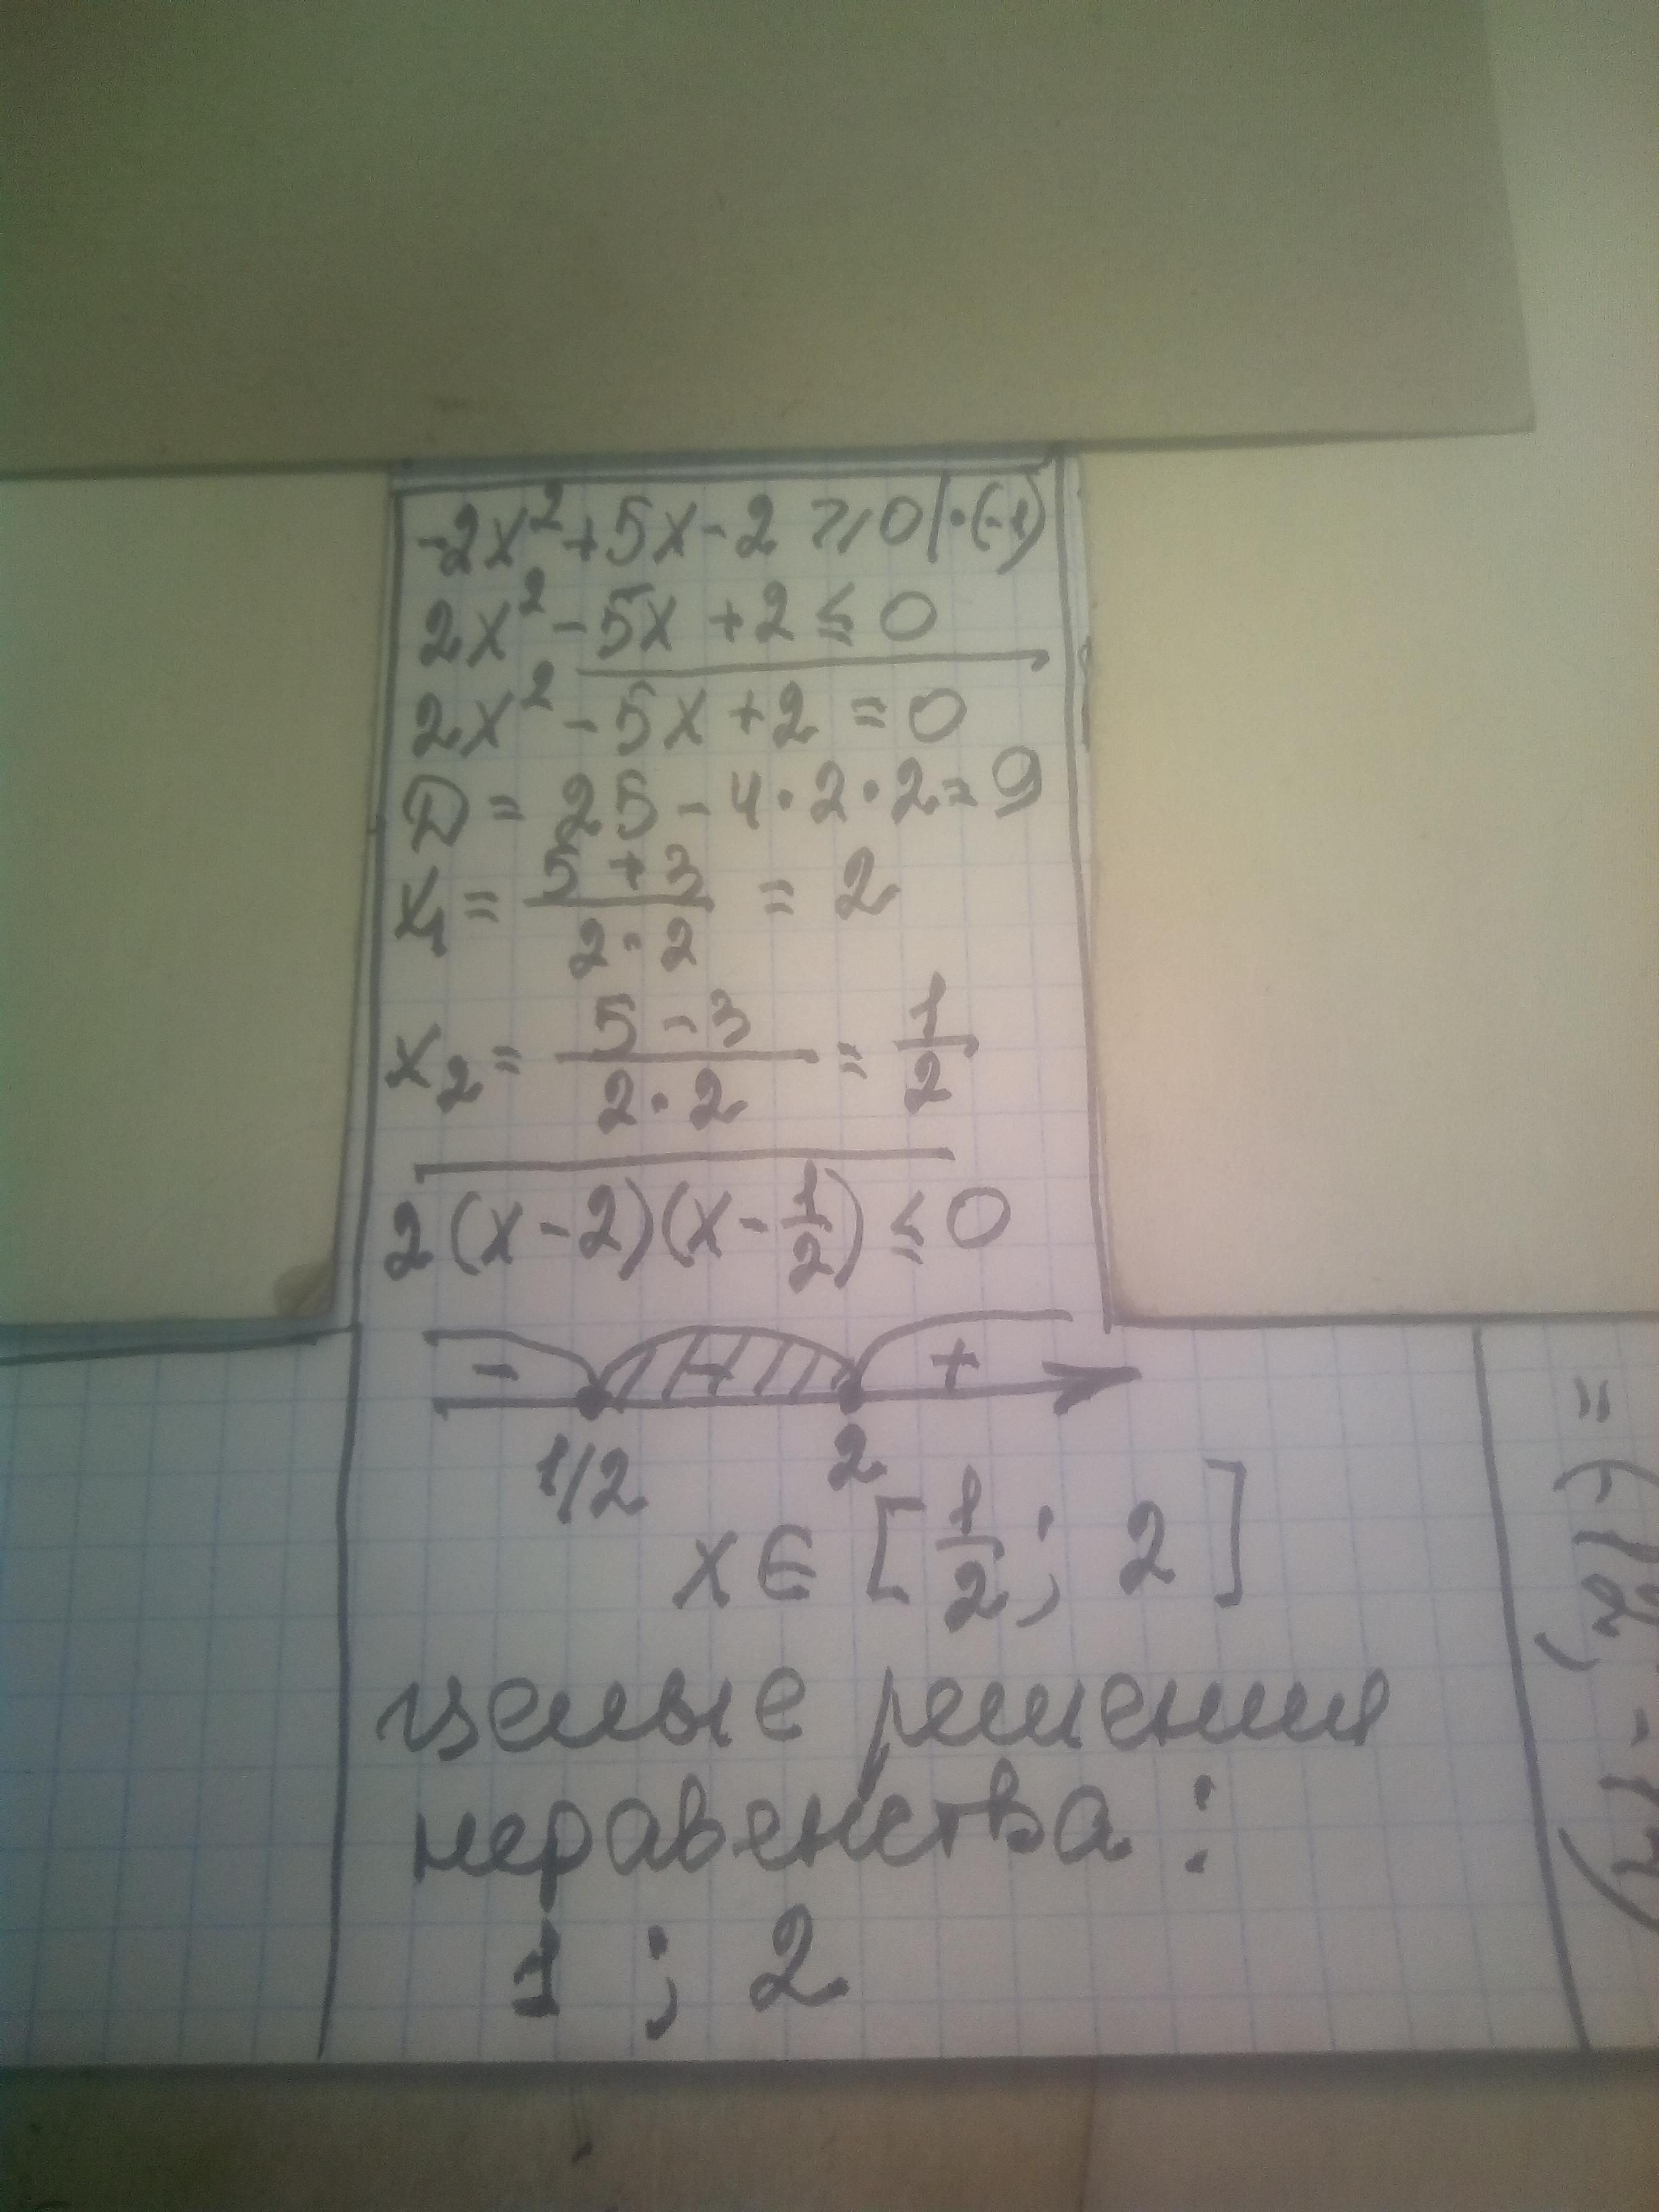 -2x²+5x-2 ⩾ 0 |·(-1)
2x²-5x+2 ≤ 0
2x²-5x+2=0
D = 25-4·2·2=9
x₁ = (5+3)/(2·2) = 2
x₂ = (5-3)/(2·2) = 1/2
2(x-2)(x-1/2) ≤ 0
- + +
1/2 2
x ∈ [1/2; 2]
целые решения
неравенства:
1 ; 2